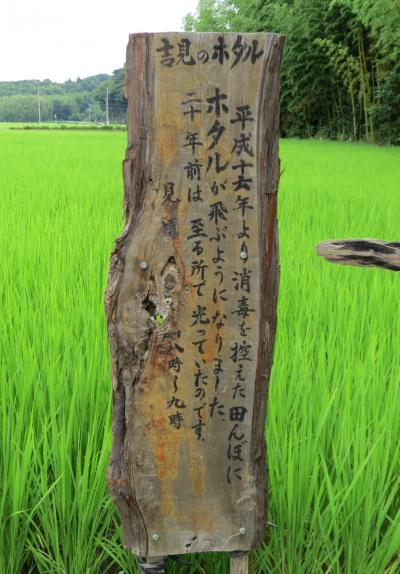 吉見のホタル
平成十六年より消毒を控えた田んぼに
ホタルが飛ぶようになりました、
二十年前は至る所で光っていたのです。
見頃
八時〜九時